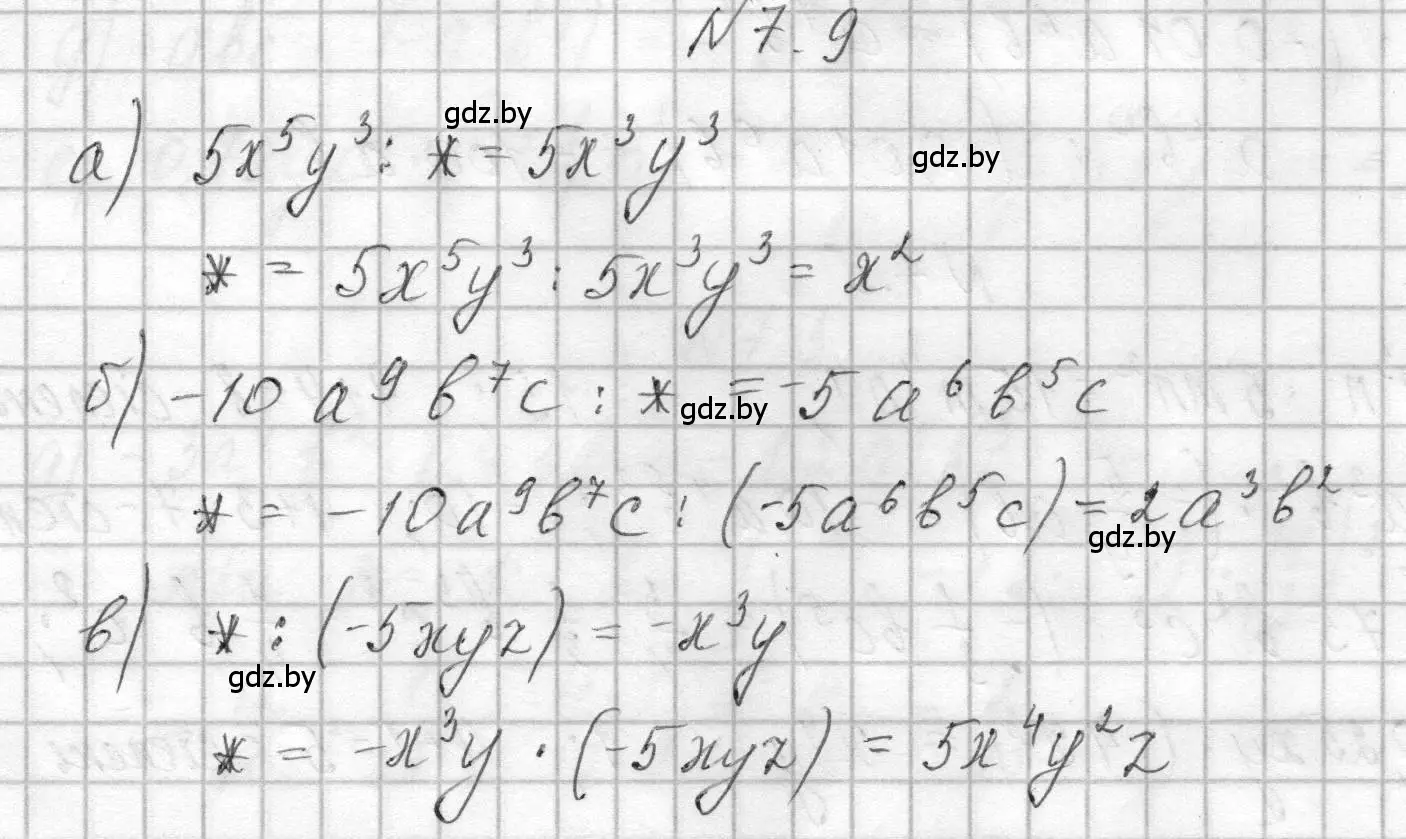 N 7.9
gdz.by
а) 5x⁵y³ : * = 5x³y³
gdz.by
* = 5x⁵y³ : 5x³y³ = x²
б) -10a⁹b⁷c : * = -5a⁶b⁵c
gdz.by
* = -10a⁹b⁷c : (-5a⁶b⁵c) = 2a³b²
gdz.by
в) * : (-5xyz) = -x³y
gdz.by
* = -x³y · (-5xyz) = 5x⁴y²z